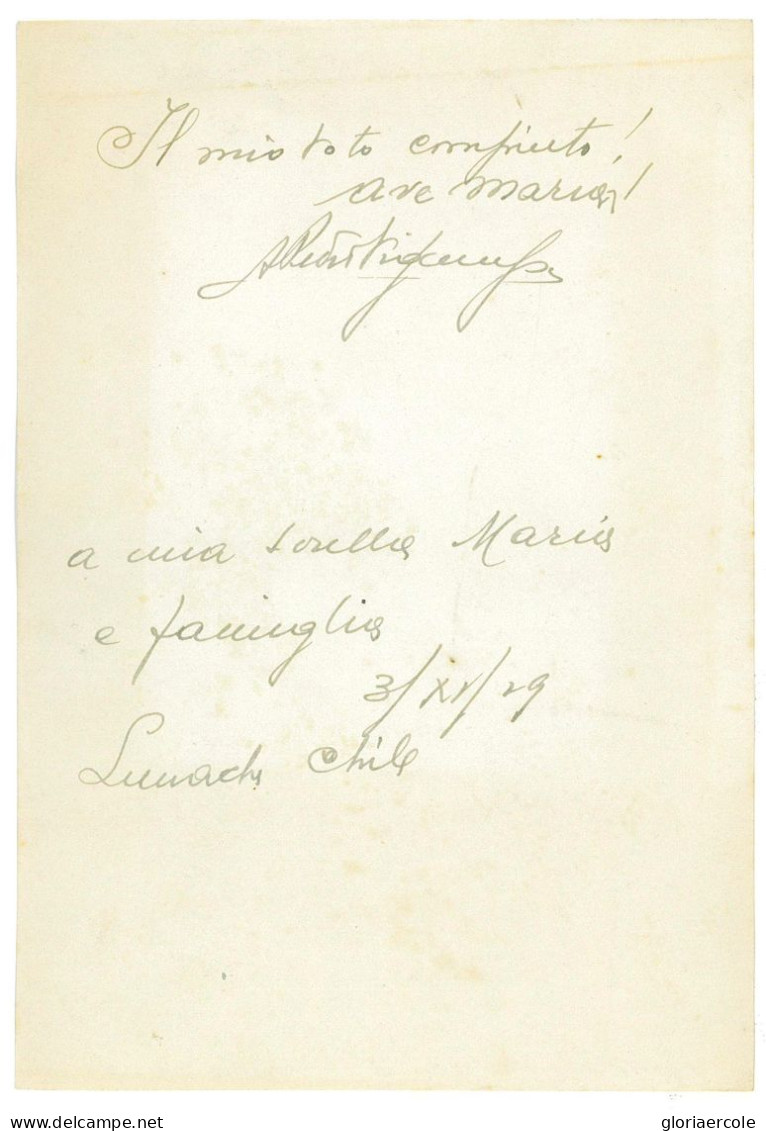 Il mio voto compiuto!
ave Maria!
a mia sorella Maria
e famiglia
3/XI/29
Limache Chile
delcampe.net
gloriaercole